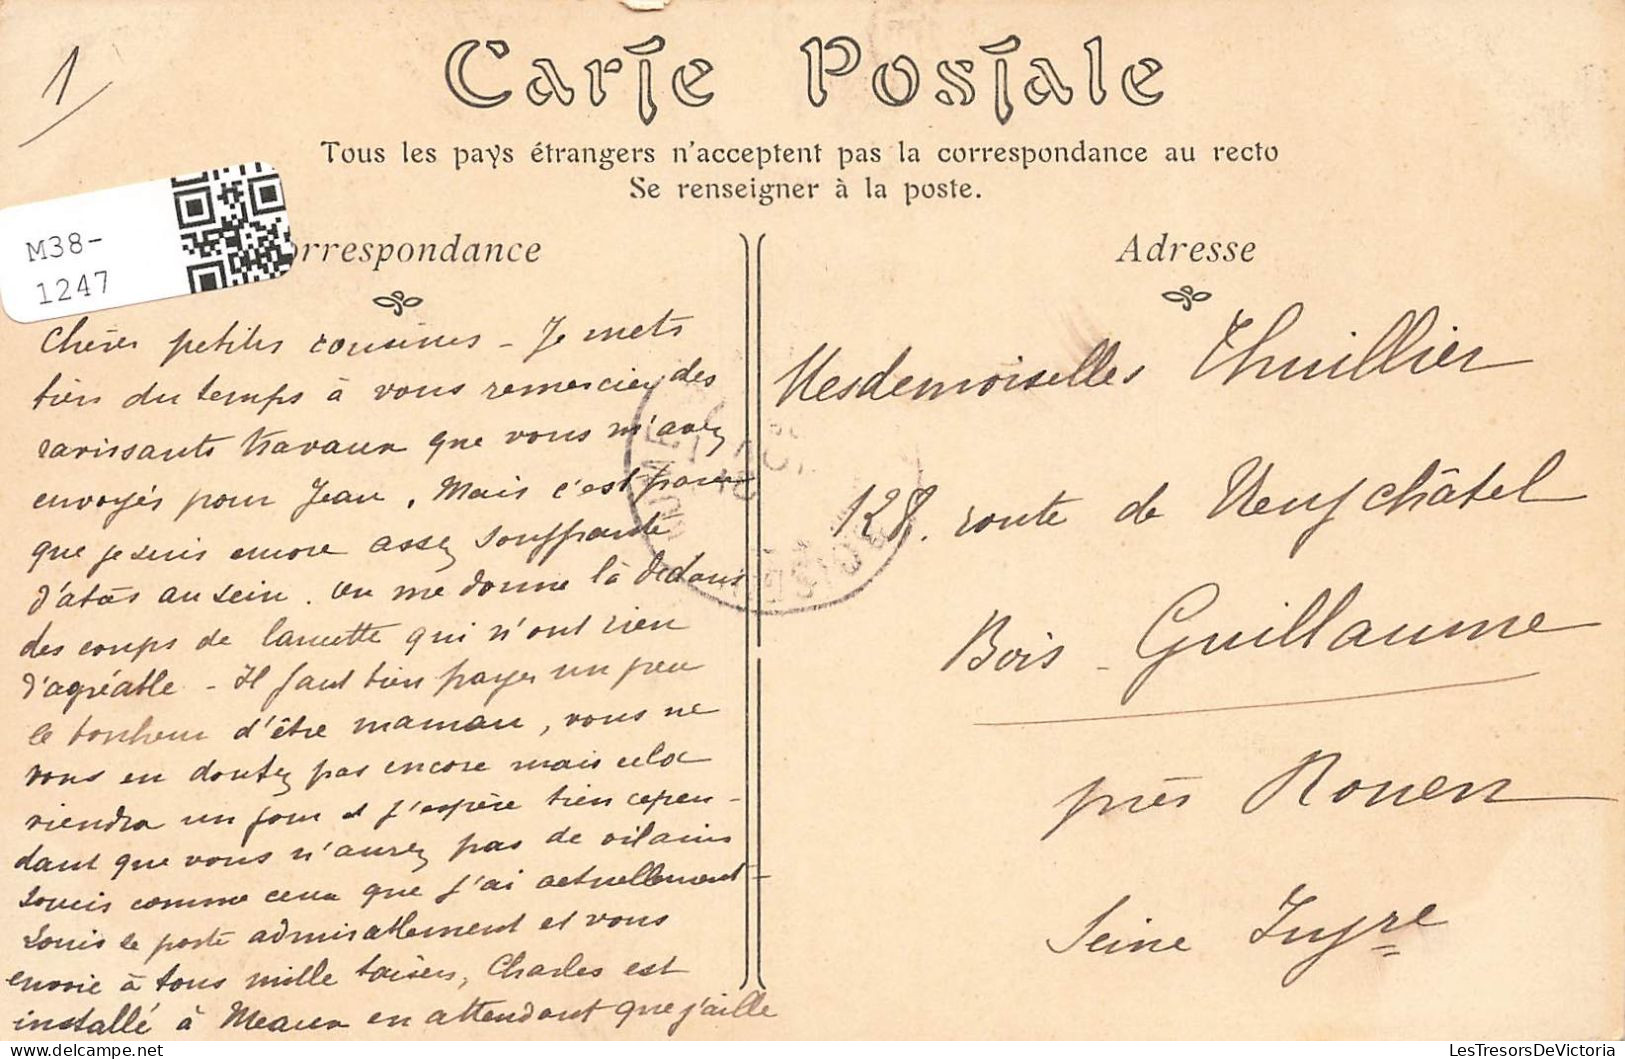 1
Carte Postale
Tous les pays étrangers n'acceptent pas la correspondance au recto
Se renseigner à la poste.
M38-
1247
orrespondance
Chères petites cousines - Je mets
bien du temps à vous remercier des
ravissants travaux que vous m'avez
envoyés pour Jean. Mais c'est parce
que je suis encore assez souffrante
d'abcès au sein. On me donne là dedans
des coups de lancette qui n'ont rien
d'agréable - Il faut bien payer un peu
le bonheur d'être maman, vous ne
vous en doutez pas encore mais cela
viendra un jour et j'espère bien cepen-
dant que vous n'aurez pas de vilains
soucis comme ceux que j'ai actuellement -
Louis se porte admirablement et vous
envoie à tous mille baisers, Charles est
installé à Meaux en attendant que j'aille
Adresse
Mesdemoiselles Thuillier
128. route de Neufchâtel
Bois - Guillaume
près Rouen
Seine Infre
LesTresorsDeVictoria